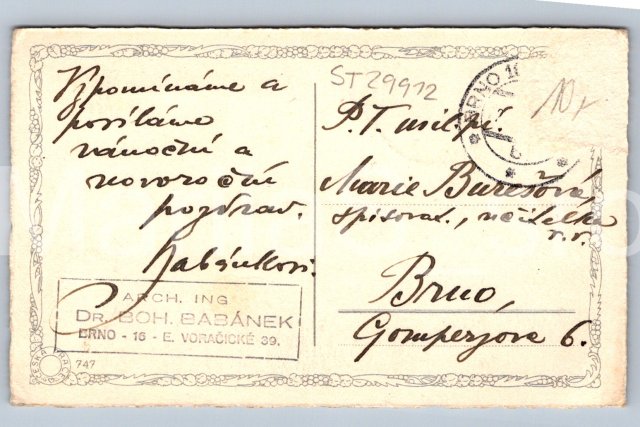 Vzpomínáme a
posíláme
vánoční a
novoroční
pozdrav.
Babánkovi.
ARCH. ING
DR. BOH. BABÁNEK
BRNO - 16 - E. VORAČICKÉ 39.
747
ST29912
BRNO 16
10,-
P.T. mil. pí.
Marie Burešová
spisovat., učitelka
v.v.
Brno,
Gomperzova 6.